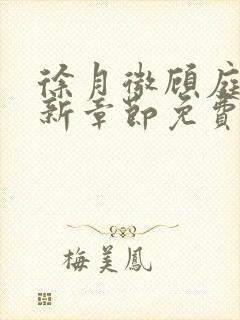 徐月微顾庭
新章節免費
梅美鳳